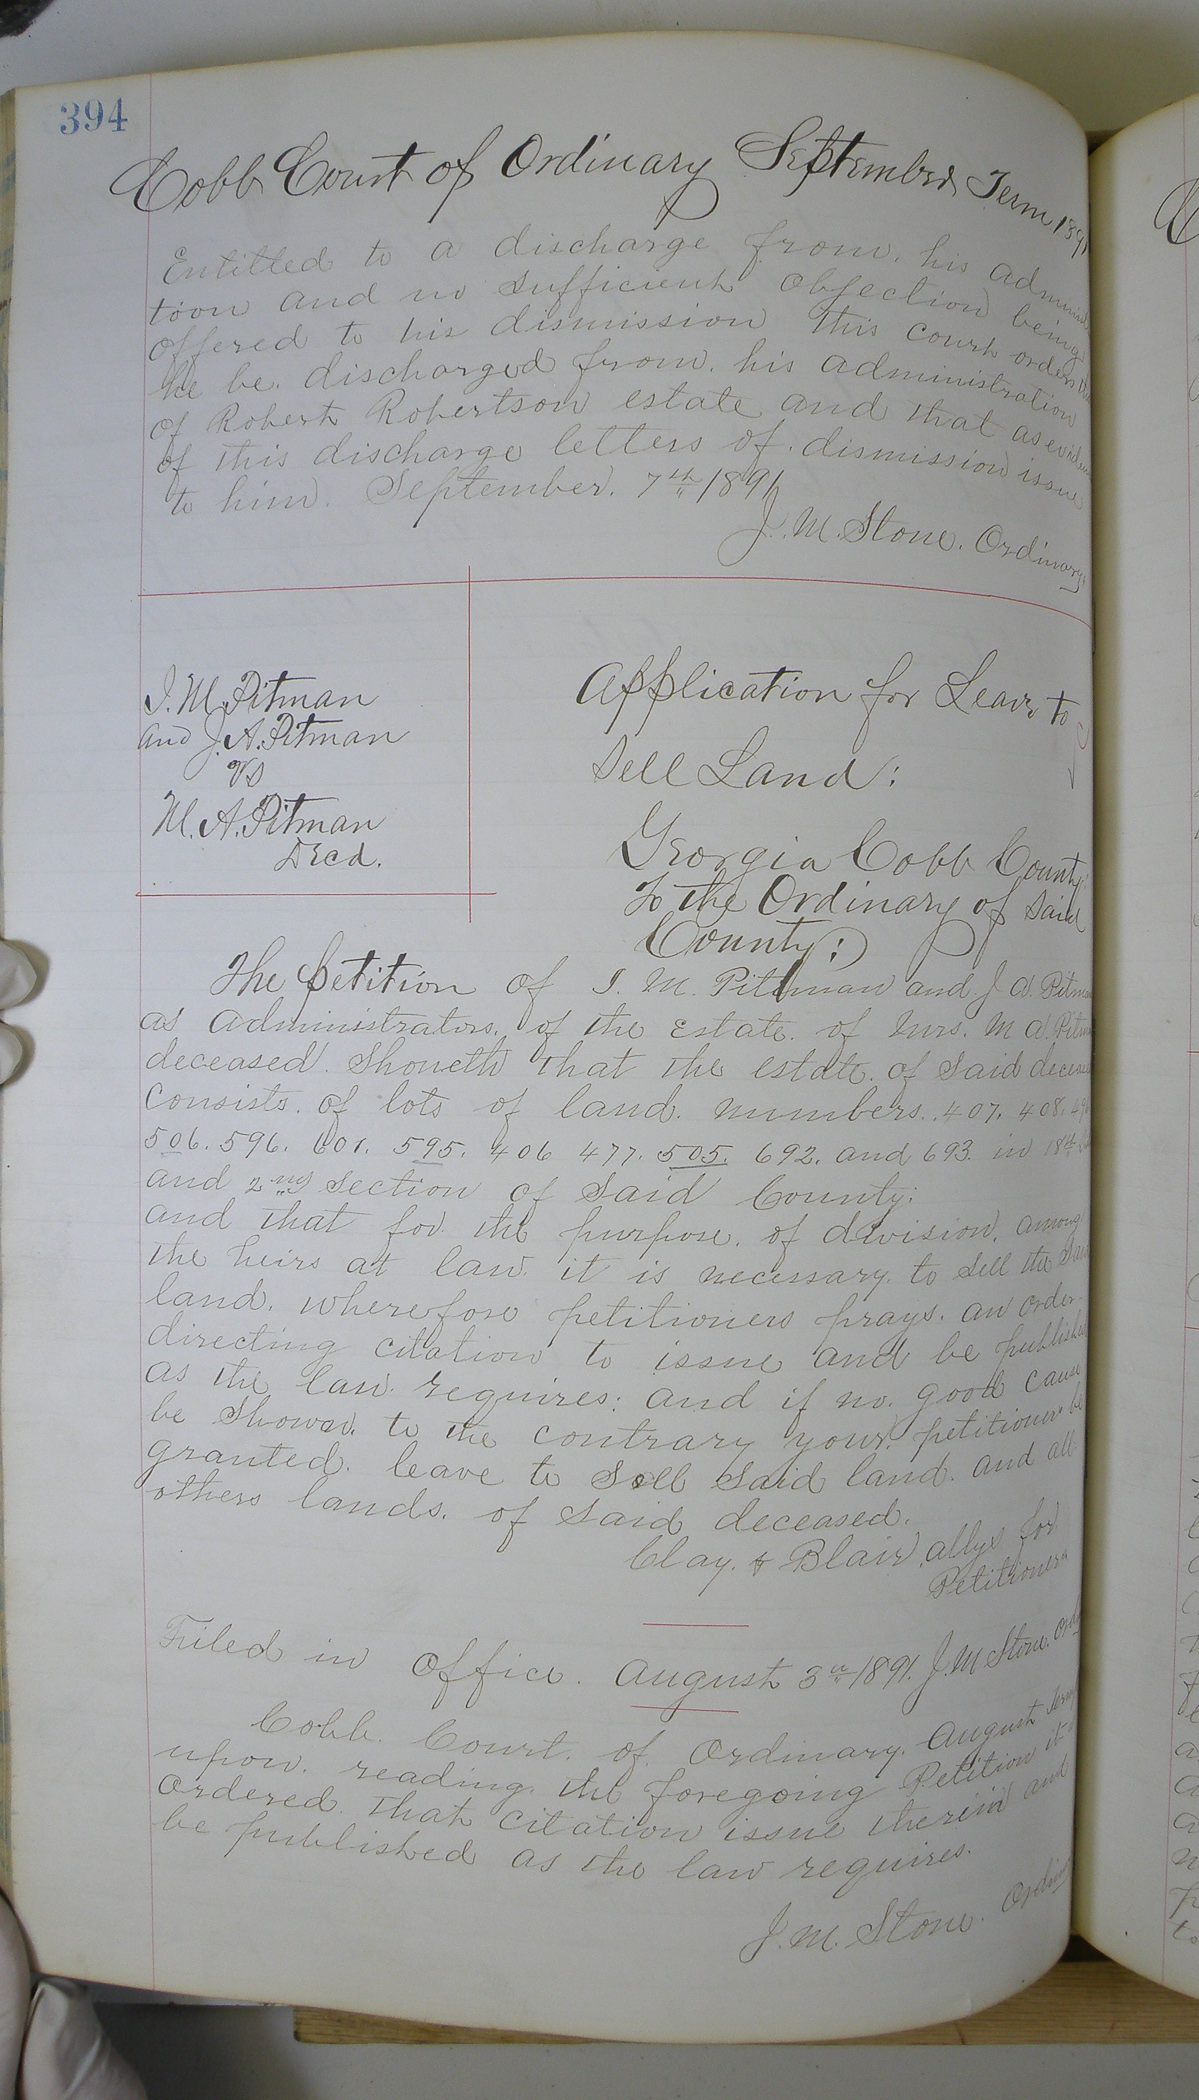 394
Cobb Court of Ordinary September Term 1891
Entitled to a discharge from. his admini
tion and no sufficient objection being
offered to his dismission this court orders
he be. discharged from. his administration
of Robert Robertson estate and that as
of this discharge letters of. dismission issue
to him. September. 7th 1891
J. M. Stone. Ordinary
I. M. Pitman
and J. A. Pitman
vs
M. A. Pitman
Decd.
Application for Leave to
Sell Land:
Georgia Cobb County
To the Ordinary of Said
County:
The petition of I. M. Pittman and J A Pitman
as administrators. of the Estate. of Mrs. M A Pitm
deceased. Shoneth that the estate. of Said deceas
Consists. of lots of land. numbers. 407. 408.
506. 596. 601. 595. 406 477. 505. 692. and 693. in 18th
and 2nd Section of Said County:
and that for the purpose. of division. among
the heirs at law. it is necessary. to Sell the Said
land. wherefore petitioners prays. an order
directing citation to issue and be published
as the law. requires: and if no. good cause
be Shown. to the contrary your petitioners be
granted. leave to Sell Said land. and all
others lands. of Said deceased.
Clay. & Blair attys for
Petitioners
Filed in Office. August 3rd 1891. J. M Stone. Ordy
Cobb. Court. of Ordinary. August Term
upon. reading. the foregoing Petition it
Ordered. that citation issue therein and
be published as the law requires.
J. M. Stone. Ordin